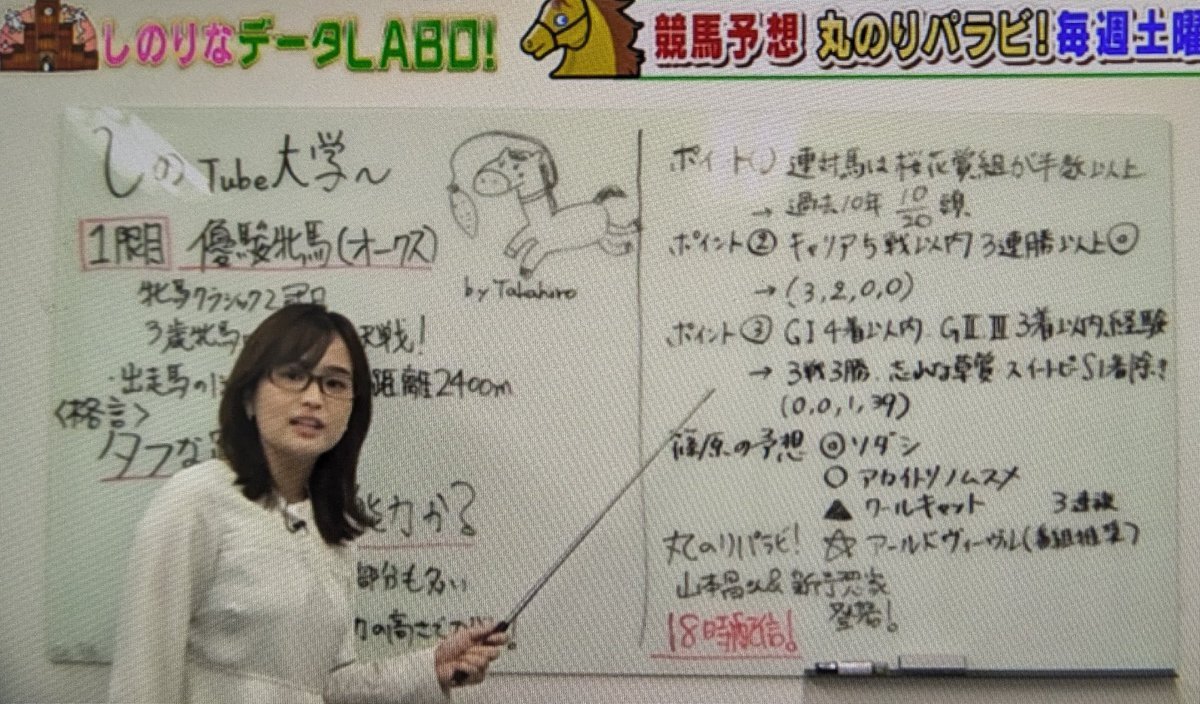 しのりなデータLABO!
競馬予想 丸のりパラビ!毎週土曜
しのTube大学〜
1限目 優駿牝馬(オークス)
by Takahiro
牝馬クラシック2冠目
3歳牝馬 戦!
・出走馬のほ 距離2400m
<格言>
タフな
能力か?
部分も多い
の高さで
ポイント① 連対馬は桜花賞組が半数以上
→ 過去10年 10/20 頭
ポイント② キャリア5戦以内 3連勝以上◎
→(3,2,0,0)
ポイント③ GⅠ4着以内、GⅡ、Ⅲ 3着以内経験
→ 3戦3勝、忘れな草賞 スイートピーS1着除き
(0,0,1,39)
篠原の予想 ◎ソダシ
○アカイトリノムスメ
▲クールキャット 3連複
丸のりパラビ! ☆アールドヴィーヴル(番組推奨)
山本昌さん& 新予想家
登場!
18時配信!